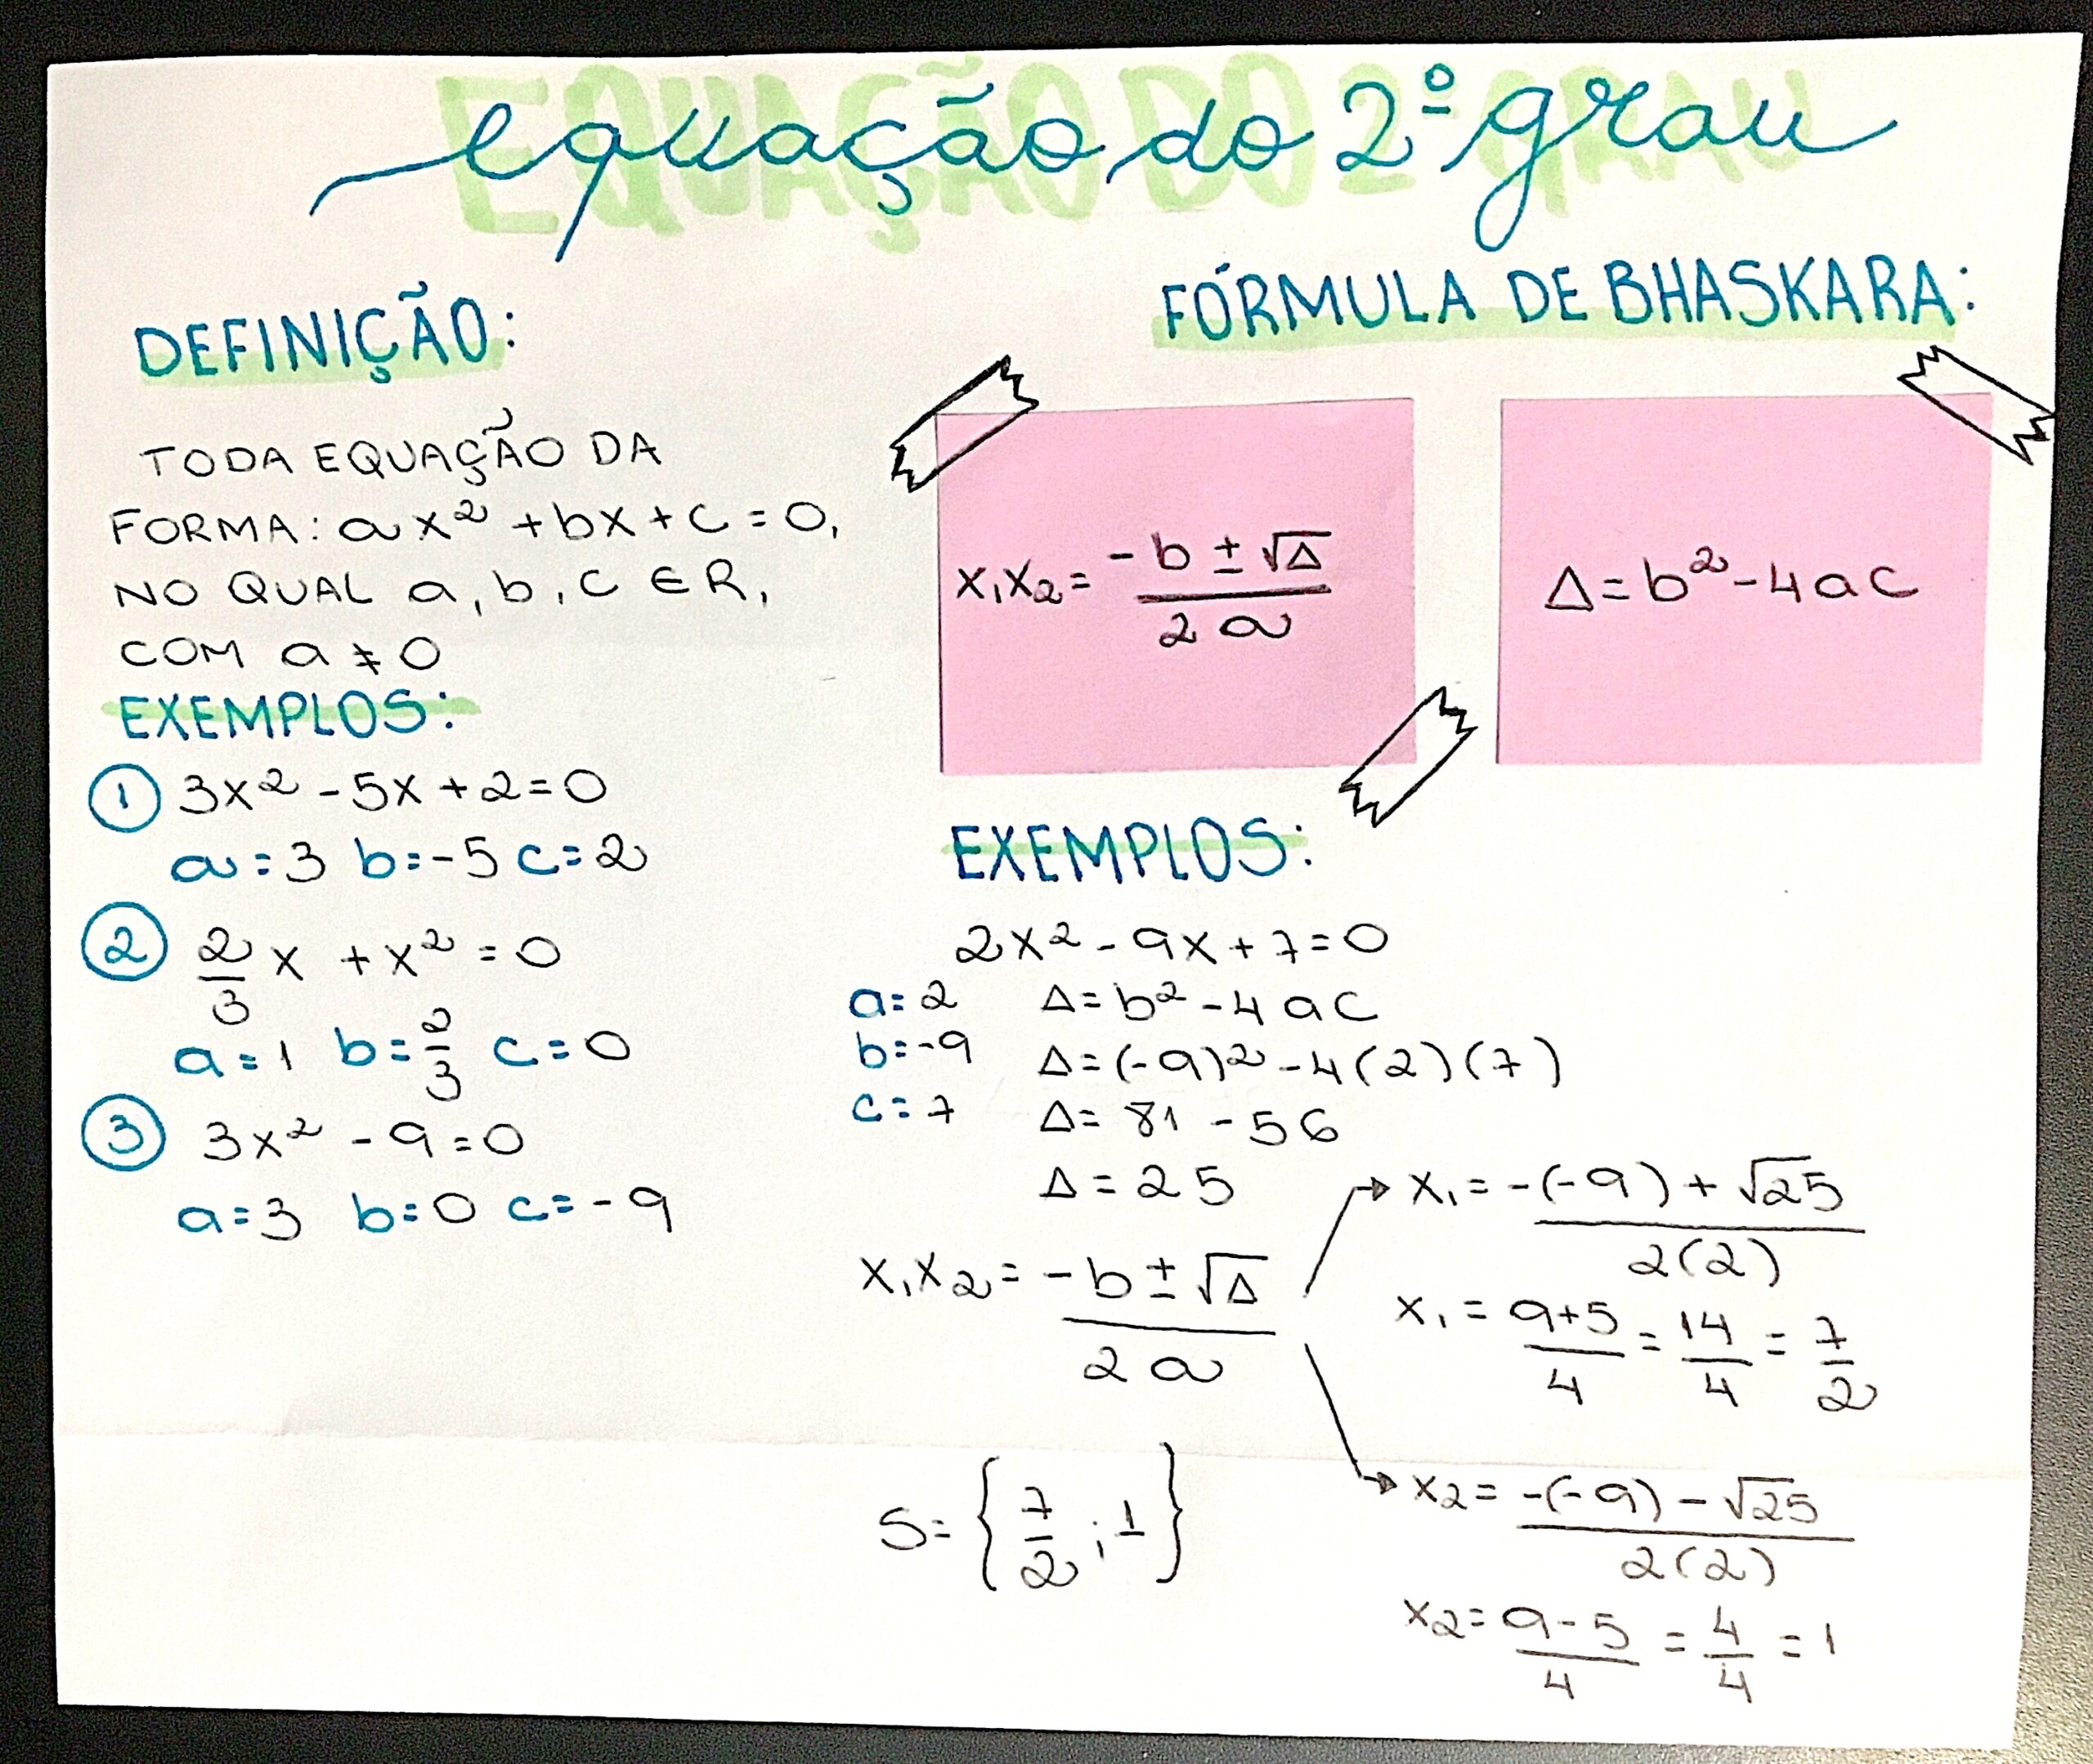 equação do 2º grau
EQUAÇÃO DO 2º GRAU
DEFINIÇÃO:
TODA EQUAÇÃO DA
FORMA: ax² + bx + c = 0,
NO QUAL a, b, c ∈ R,
COM a ≠ 0
EXEMPLOS:
① 3x² - 5x + 2 = 0
a = 3 b = -5 c = 2
② 2/3 x + x² = 0
a = 1 b = 2/3 c = 0
③ 3x² - 9 = 0
a = 3 b = 0 c = -9
FÓRMULA DE BHASKARA:
x₁x₂ = (-b ± √Δ)/(2a)
Δ = b² - 4ac
EXEMPLOS:
2x² - 9x + 7 = 0
a = 2 Δ = b² - 4ac
b = -9 Δ = (-9)² - 4(2)(7)
c = 7 Δ = 81 - 56
Δ = 25
x₁x₂ = (-b ± √Δ)/(2a)
x₁ = (-(-9) + √25)/(2(2))
x₁ = (9+5)/4 = 14/4 = 7/2
x₂ = (-(-9) - √25)/(2(2))
x₂ = (9-5)/4 = 4/4 = 1
S = {7/2 ; 1}